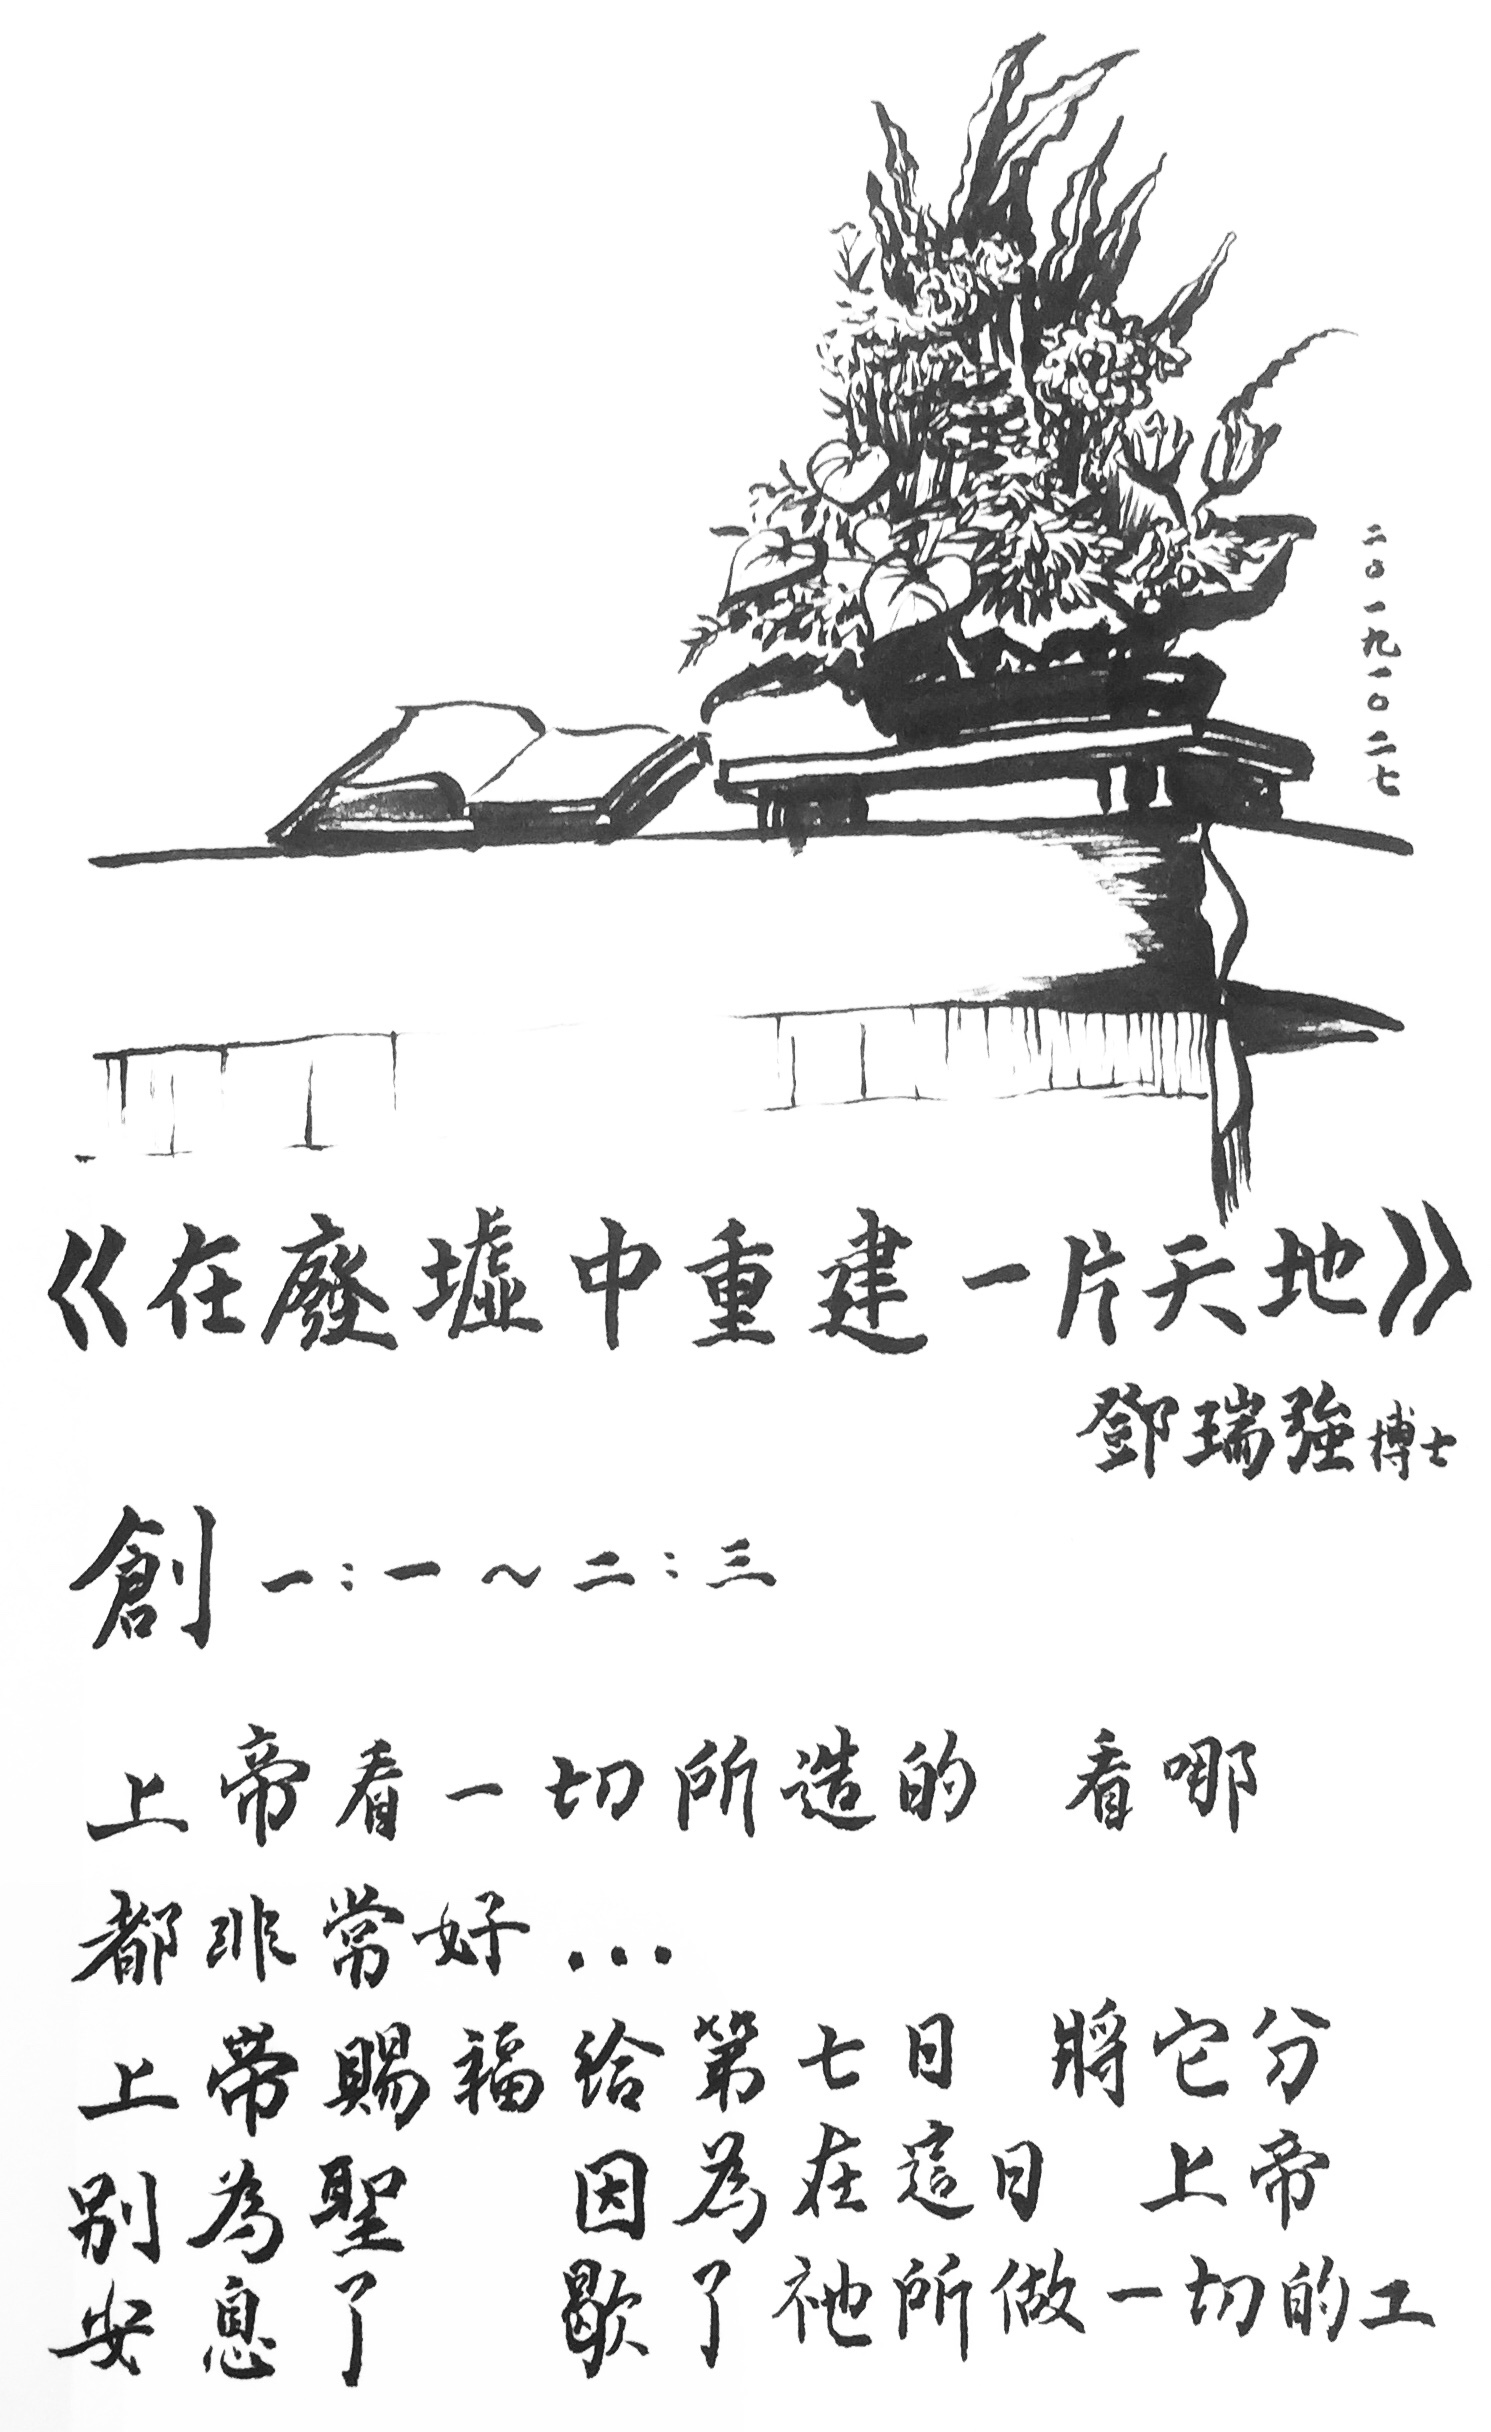 二〇一九一〇二七
《在廢墟中重建一片天地》
鄧瑞強博士
創一:一～二:三
上帝看一切所造的 看哪
都非常好...
上帝賜福給第七日 將它分
別為聖 因為在這日 上帝
安息了 歇了祂所做一切的工